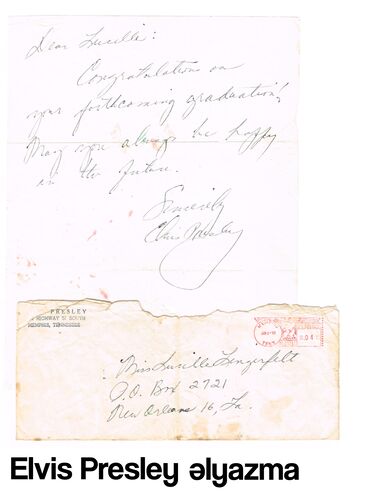 Dear Lucille:
Congratulations on
your forthcoming graduation!
May you always be happy
in the future.
Sincerely
Elvis Presley
PRESLEY
HIGHWAY 51 SOUTH
MEMPHIS, TENNESSEE
Miss Lucille Lengerfelt
P.O. Box 2721
New Orleans 16, La.
Elvis Presley əlyazma